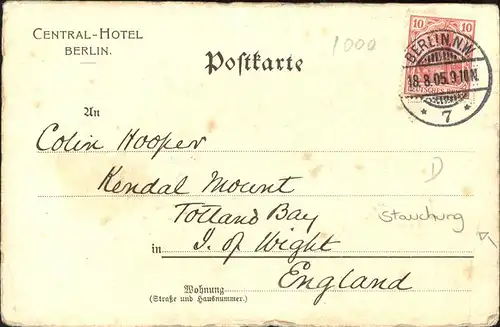 CENTRAL-HOTEL
BERLIN.
1000
10 10
BERLIN, N.W.
18.8.05. 9-10 N.
* 7 *
Postkarte
An
Colin Hooper
Kendal Mount
Totland Bay
D
Stauchung
in I. of Wight
England
Wohnung
(Straße und Hausnummer.)